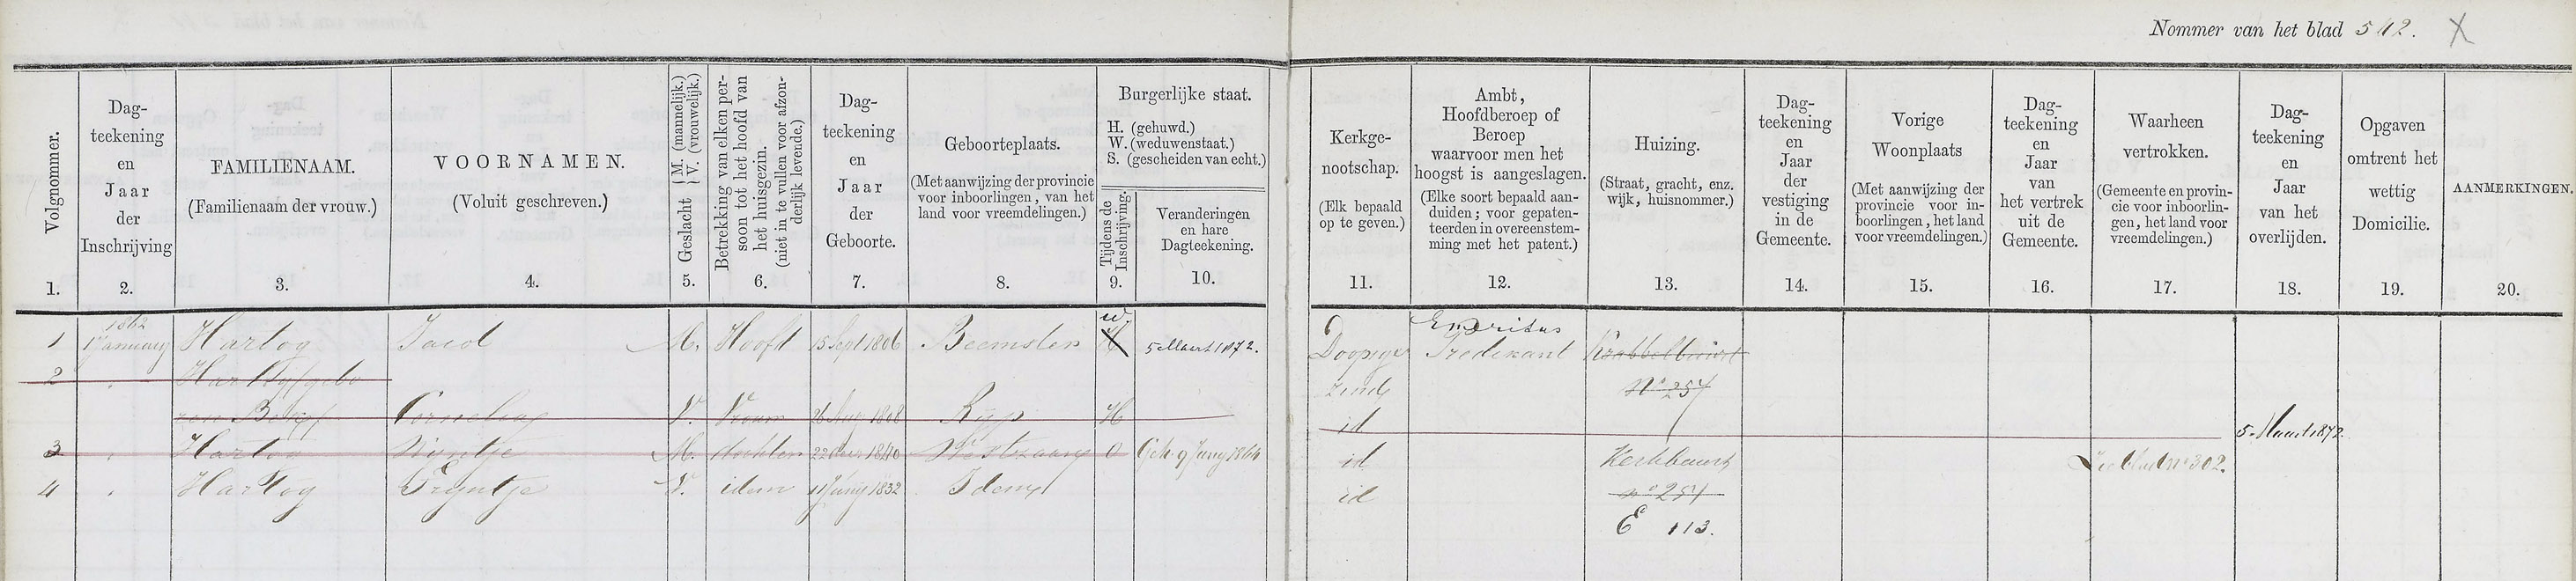 Nommer van het blad 542. X
Volgnommer.
1.
Dag-
teekening
en
Jaar
der
Inschrijving
2.
FAMILIENAAM.
(Familienaam der vrouw.)
3.
VOORNAMEN.
(Voluit geschreven.)
4.
Geslacht { M. (mannelijk.)
V. (vrouwelijk.)
5.
Betrekking van elken per-
soon tot het hoofd van
het huisgezin.
(niet in te vullen voor afzon-
derlijk levende.)
6.
Dag-
teekening
en
Jaar
der
Geboorte.
7.
Geboorteplaats.
(Met aanwijzing der provincie
voor inboorlingen, van het
land voor vreemdelingen.)
8.
Burgerlijke staat.
H. (gehuwd.)
W. (weduwenstaat.)
S. (gescheiden van echt.)
Tijdens de
Inschrijving.
9.
Veranderingen
en hare
Dagteekening.
10.
Kerkge-
nootschap.
(Elk bepaald
op te geven.)
11.
Ambt,
Hoofdberoep of
Beroep
waarvoor men het
hoogst is aangeslagen.
(Elke soort bepaald aan-
duiden; voor gepaten-
teerden in overeenstem-
ming met het patent.)
12.
Huizing.
(Straat, gracht, enz.
wijk, huisnommer.)
13.
Dag-
teekening
en
Jaar
der
vestiging
in de
Gemeente.
14.
Vorige
Woonplaats
(Met aanwijzing der
provincie voor in-
boorlingen, het land
voor vreemdelingen.)
15.
Dag-
teekening
en
Jaar
van
het vertrek
uit de
Gemeente.
16.
Waarheen
vertrokken.
(Gemeente en provin-
cie voor inboorlin-
gen, het land voor
vreemdelingen.)
17.
Dag-
teekening
en
Jaar
van het
overlijden.
18.
Opgaven
omtrent het
wettig
Domicilie.
19.
AANMERKINGEN.
20.
1862 w. Emeritus
1 1 January Hartog Jacob M. Hooft 15 Sept 1806 Beemster H 5 Maart 1872. Doopsge Predikant Krabbelbuurt
2 Hartog gebo zinds No 257
ren Cornelia V. Vrouw 26 Aug 1808 Ryp H id 5 Maart 1872
3 Hartog Wijntje M. dochter 22 1840 Westzaan O Geh 9 Juny 1864 id Kerkbuurt Zie blad no 302.
4 Hartog Tryntje V. idem 11 Juny 1832 Idem id no 257
E 113.